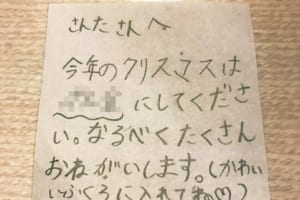 さんたさんへ
今年のクリスマスは
にしてくださ
い。なるべくたくさん
おねがいします。(かわい
いふくろに入れてね♡)